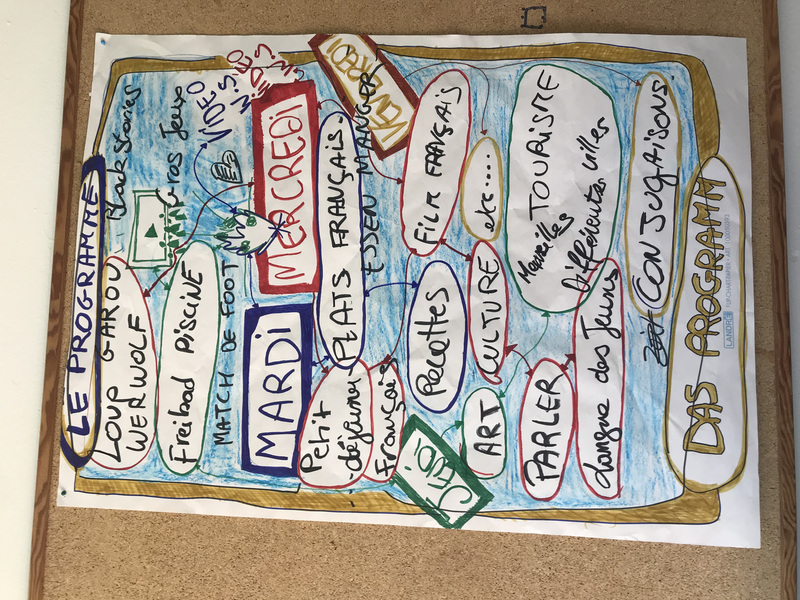 LE PROGRAMME
LOUP GAROU
WERWOLF
Black Stories
Freibad PISCINE
Gros Jeux
MATCH DE FOOT
VIDEO
MARDI
MERCREDI
PLATS FRANÇAIS
ESSEN MANGER
VENDREDI
Petit
déjeuner
Français
JEUDI
Recettes
FILM FRANÇAIS
ART
CULTURE
etc.....
PARLER
TOURISME
Marseille
différentes villes
Langue des Jeunes
CONJUGAISONS
DAS PROGRAMM